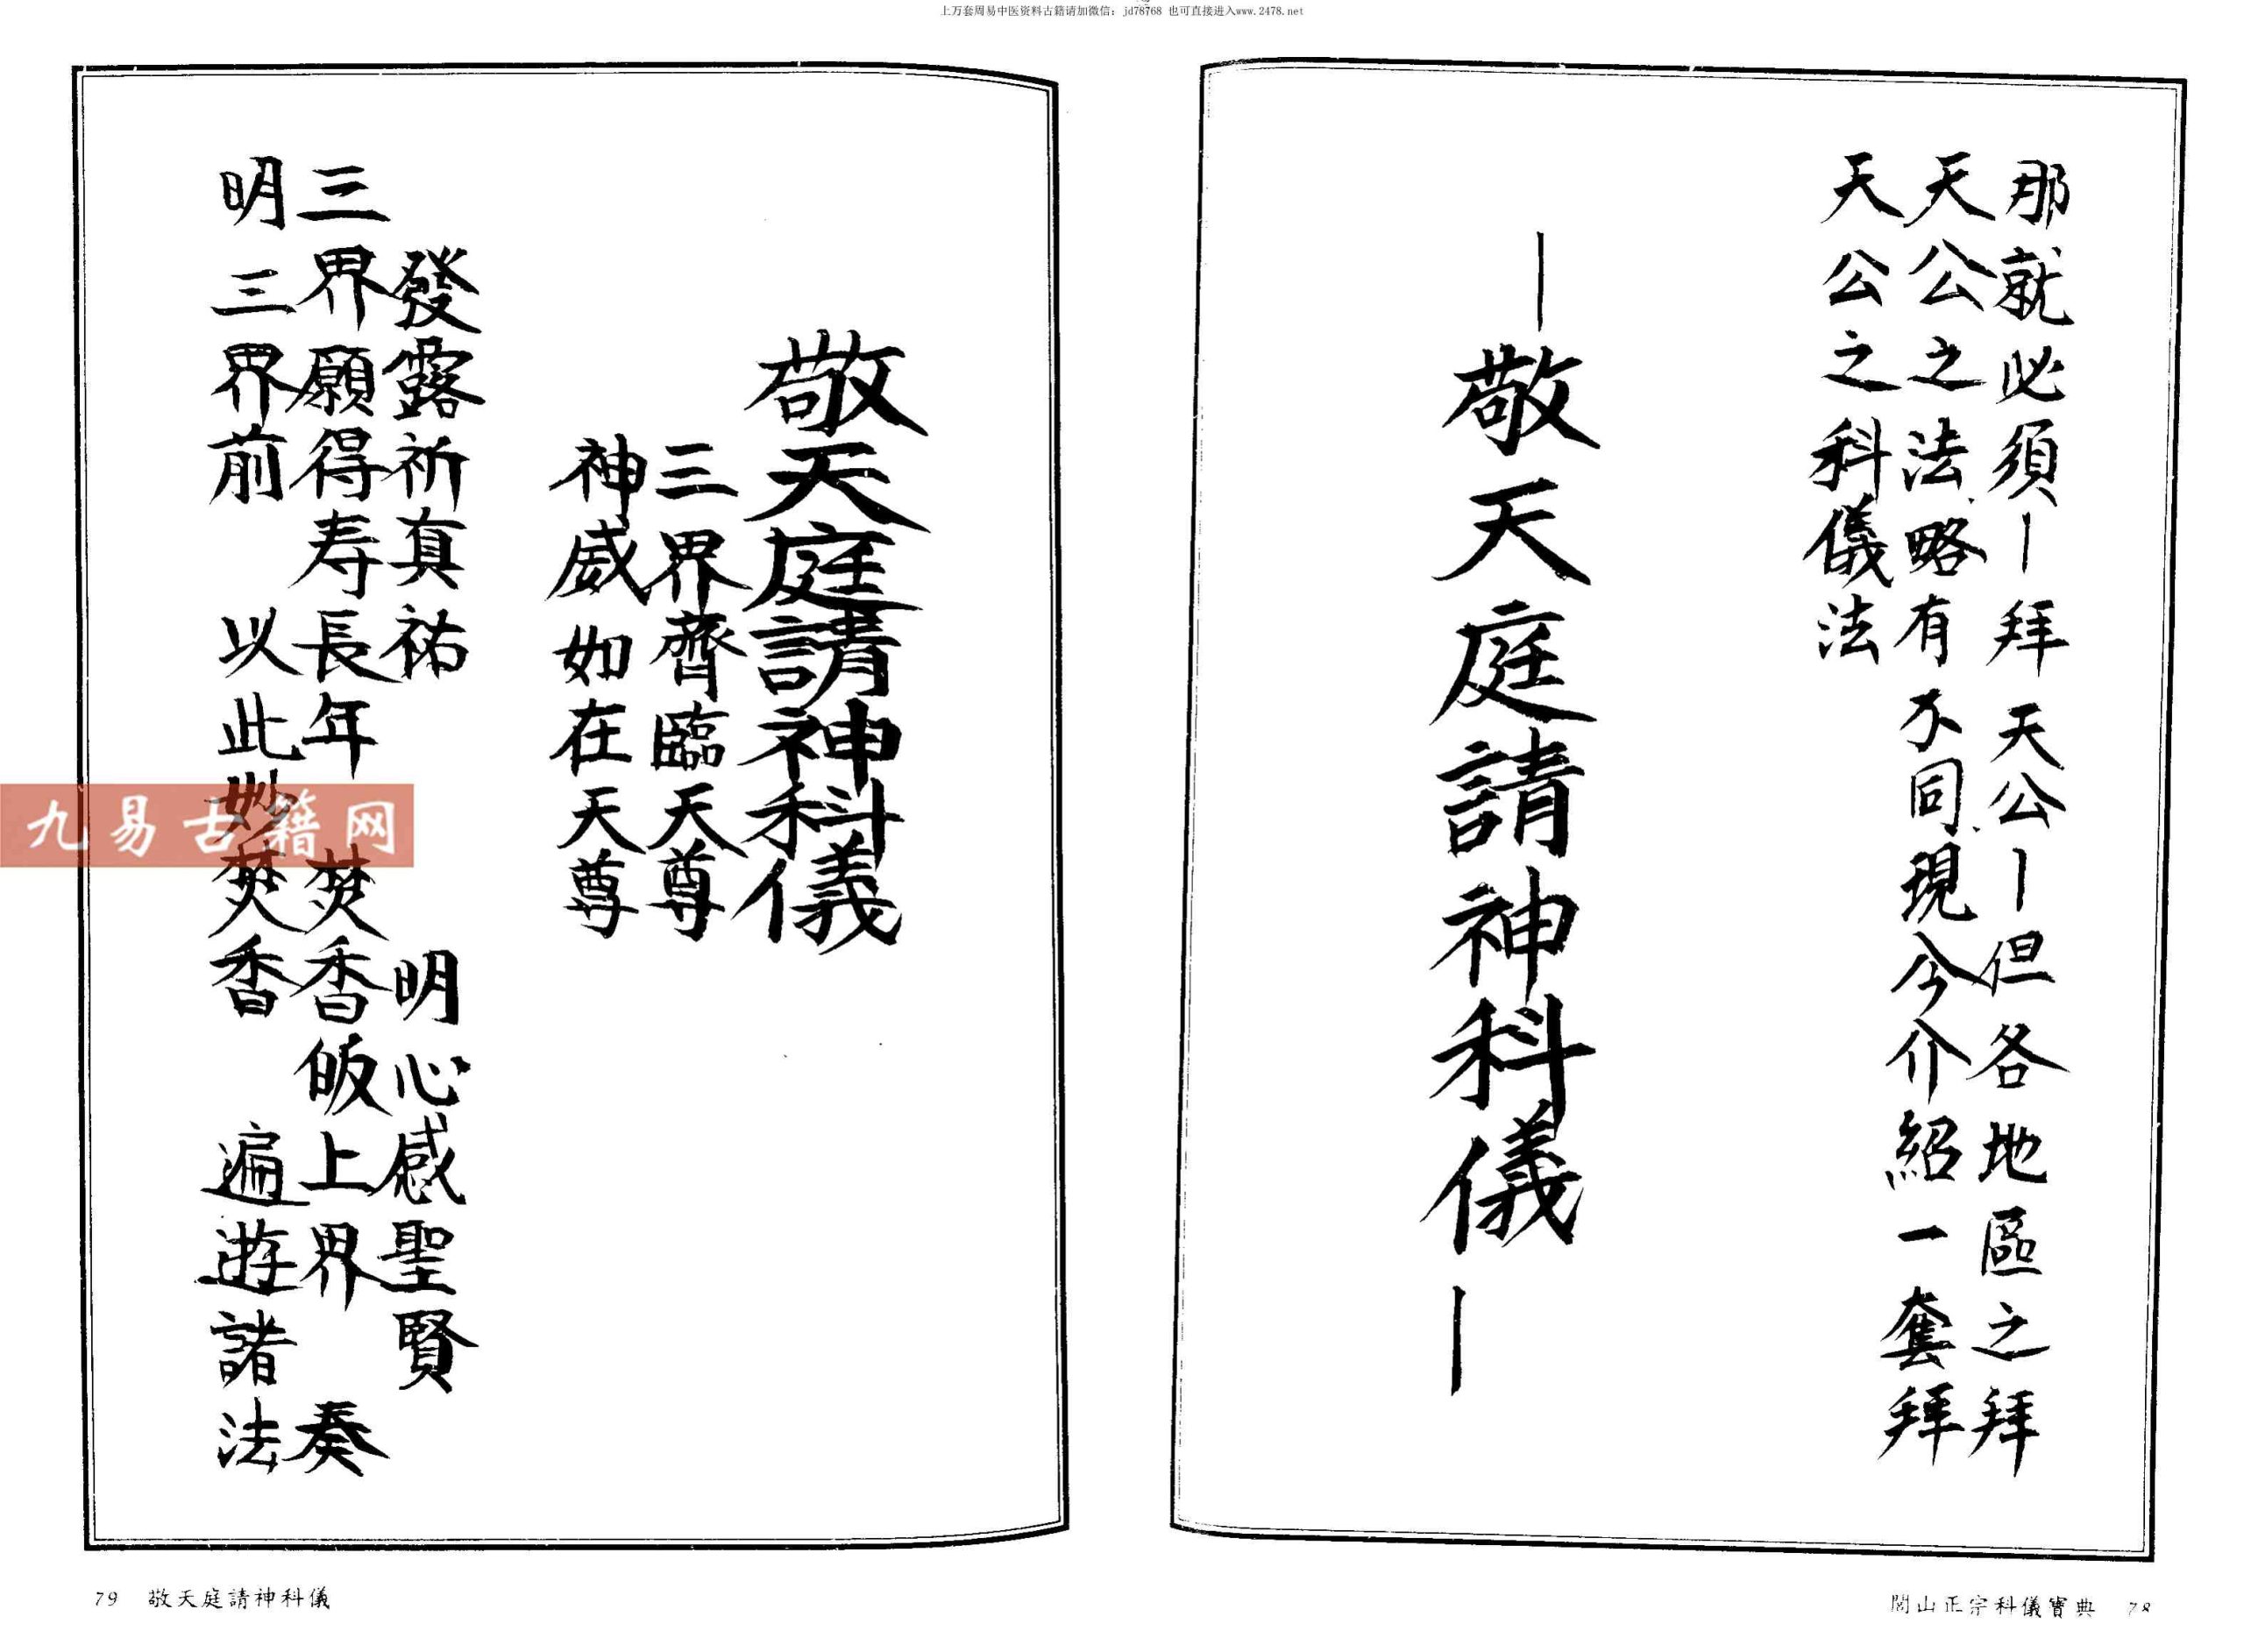 上万套周易中医资料古籍请加微信：jd78768 也可直接进入www.2478.net
那就必須—拜天公—但各地區之拜
天公之法、略有不同、現今介紹一套拜
天公之科儀法
—敬天庭請神科儀—
閭山正宗科儀寶典 78
敬天庭請神科儀
三界齊臨天尊
神威如在天尊
發露祈真祐 明心感聖賢
三界願得寿長年 焚香皈上界 奏
明三界前 以此妙焚香 遍遊諸法
79 敬天庭請神科儀
九易古籍网